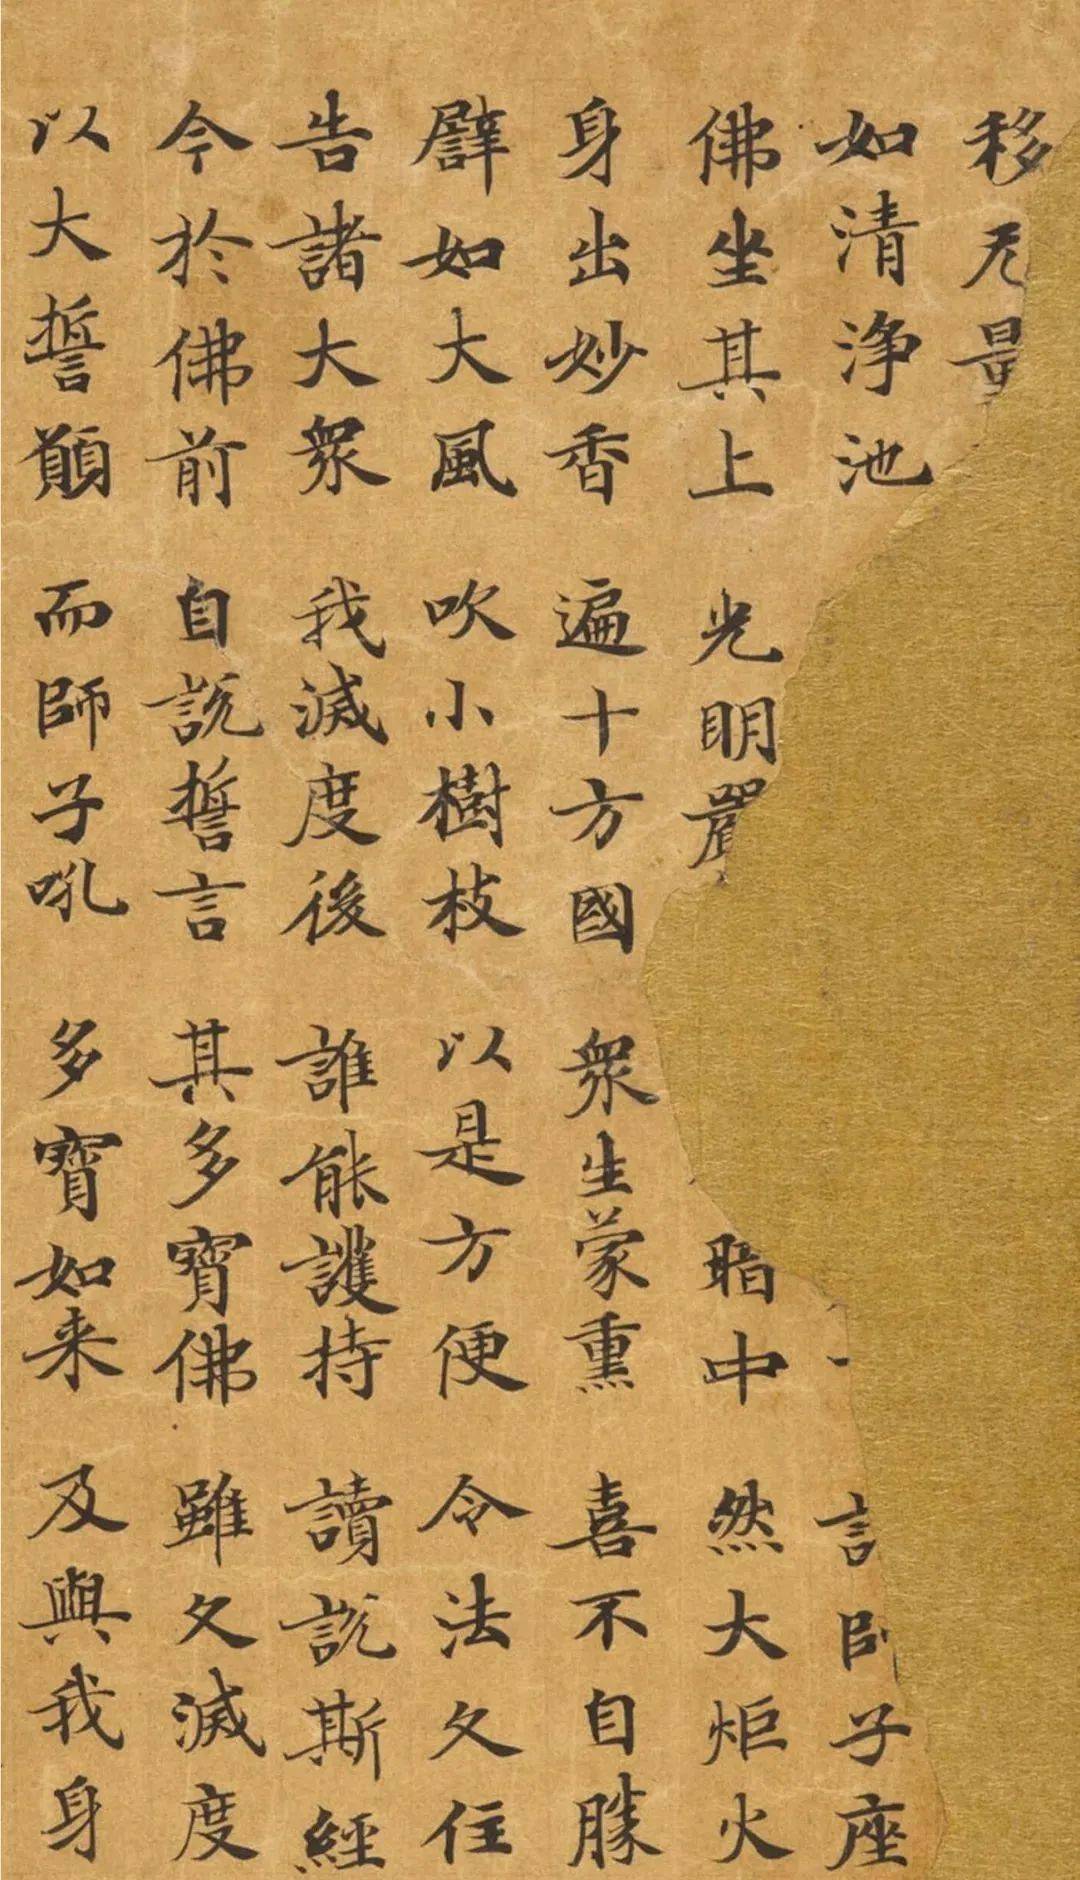 移无量
如清净池 諸師子座
佛坐其上 光明嚴 暗中 然大炬火
身出妙香 遍十方國 衆生蒙熏 喜不自勝
譬如大風 吹小樹枝 以是方便 令法久住
告諸大衆 我滅度後 誰能護持 讀說斯經
今於佛前 自說誓言 其多寶佛 雖久滅度
以大誓願 而師子吼 多寶如来 及與我身